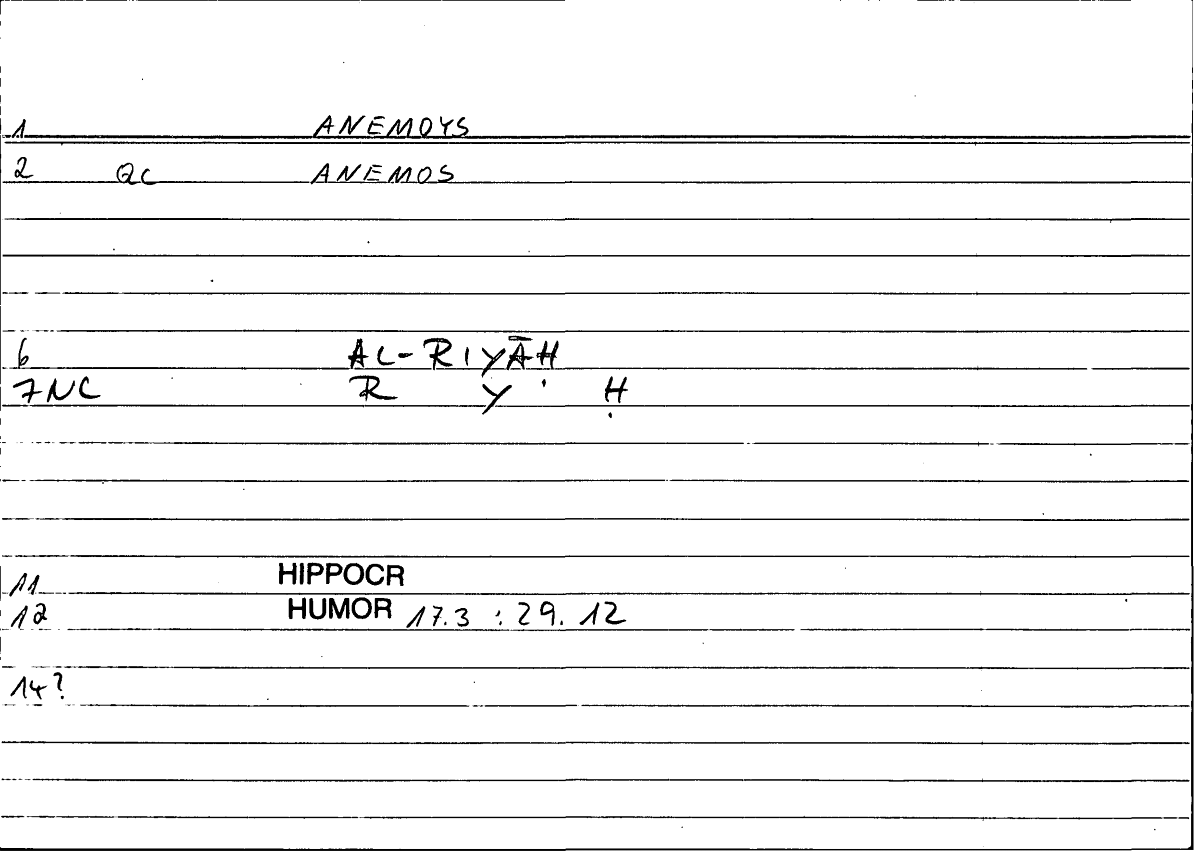 1 ANEMOYS
2 QC ANEMOS
6 AL-RIYĀḤ
7NC R Y Ḥ
11 HIPPOCR
12 HUMOR 17.3 : 29.12
14?